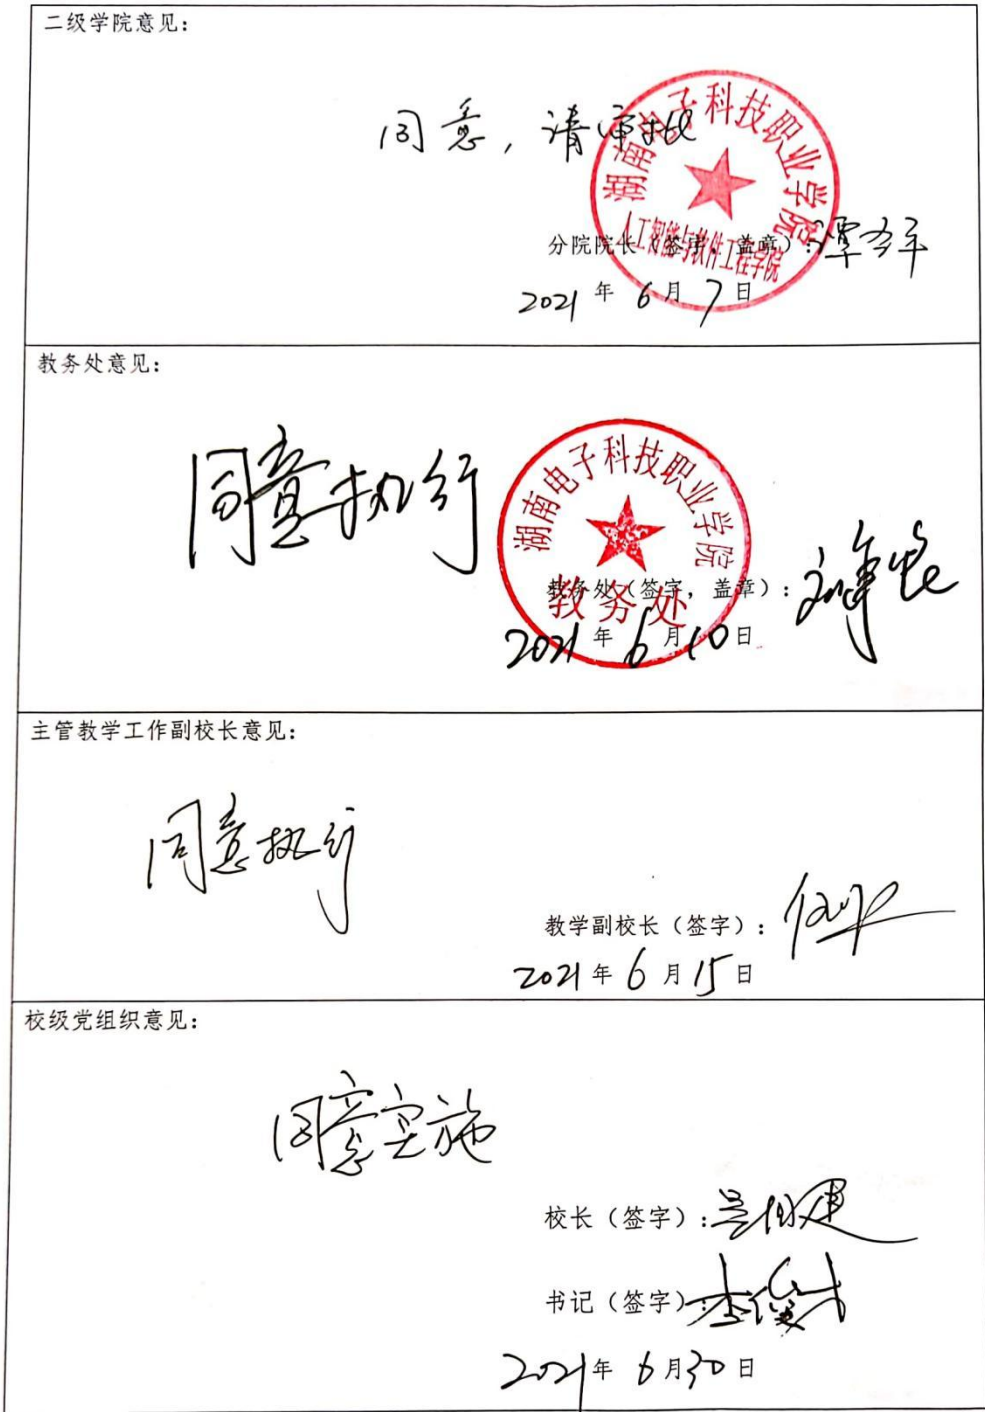 二级学院意见：
同意，请审批
湖南电子科技职业学院
人工智能与软件工程学院
分院院长（签字，盖章）：
2021年6月7日
教务处意见：
同意执行
湖南电子科技职业学院
教务处
教务处（签字，盖章）：
2021年6月10日
主管教学工作副校长意见：
同意执行
教学副校长（签字）：
2021年6月15日
校级党组织意见：
同意实施
校长（签字）：
书记（签字）：
2021年6月30日